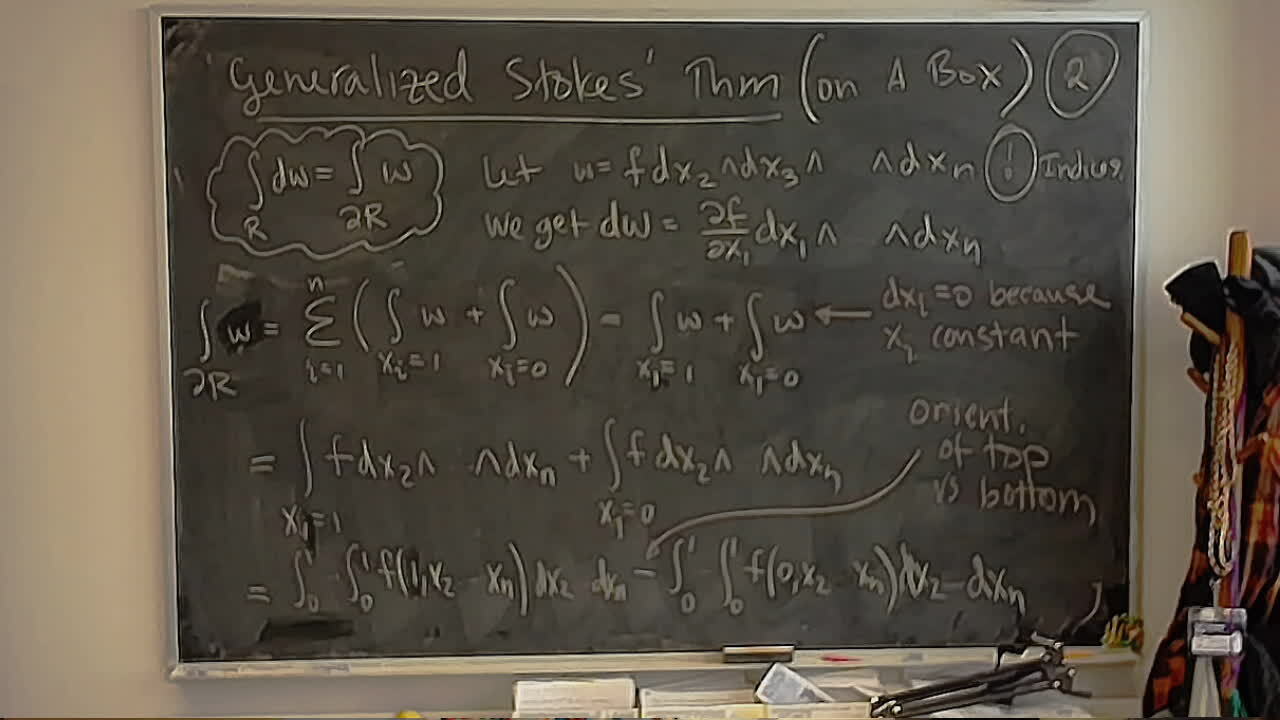 Generalized Stokes' Thm (on A Box) 2
∫_R dw = ∫_∂R w
Let w = f dx₂ ∧ dx₃ ∧ ∧ dxₙ ! Indices
We get dw = ∂f/∂x₁ dx₁ ∧ ∧ dxₙ
∫_∂R w = Σ_{i=1}^n ( ∫_{xᵢ=1} w + ∫_{xᵢ=0} w ) = ∫_{x₁=1} w + ∫_{x₁=0} w ← dxᵢ=0 because
xᵢ constant
= ∫_{x₁=1} f dx₂ ∧ ∧ dxₙ + ∫_{x₁=0} f dx₂ ∧ ∧ dxₙ
orient.
of top
vs bottom
= ∫₀¹ ∫₀¹ f(1,x₂ - xₙ) dx₂ dxₙ - ∫₀¹ ∫₀¹ f(0,x₂ xₙ) dx₂ - dxₙ